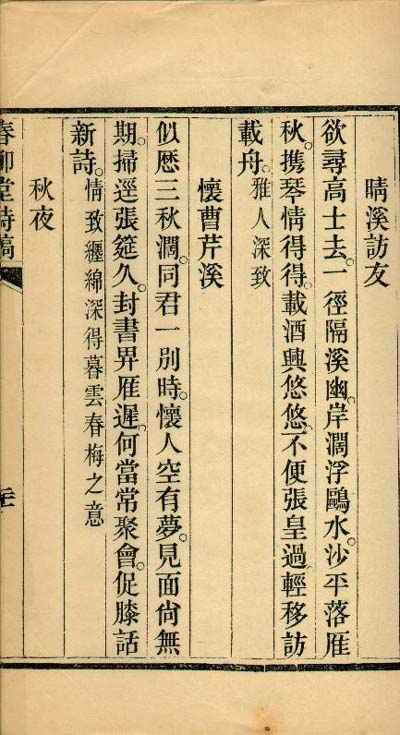 晴溪訪友
欲尋高士去。一徑隔溪幽。岸濶浮鷗水。沙平落雁
秋。攜琴情得得。載酒興悠悠。不便張皇過。輕移訪
載舟。雅人深致
懷曹芹溪
似歷三秋濶。同君一別時。懷人空有夢。見面尚無
期。掃逕張筵久。封書畀雁遲。何當常聚會。促膝話
新詩。情致纏綿深得暮雲春梅之意
秋夜
春柳堂詩稿